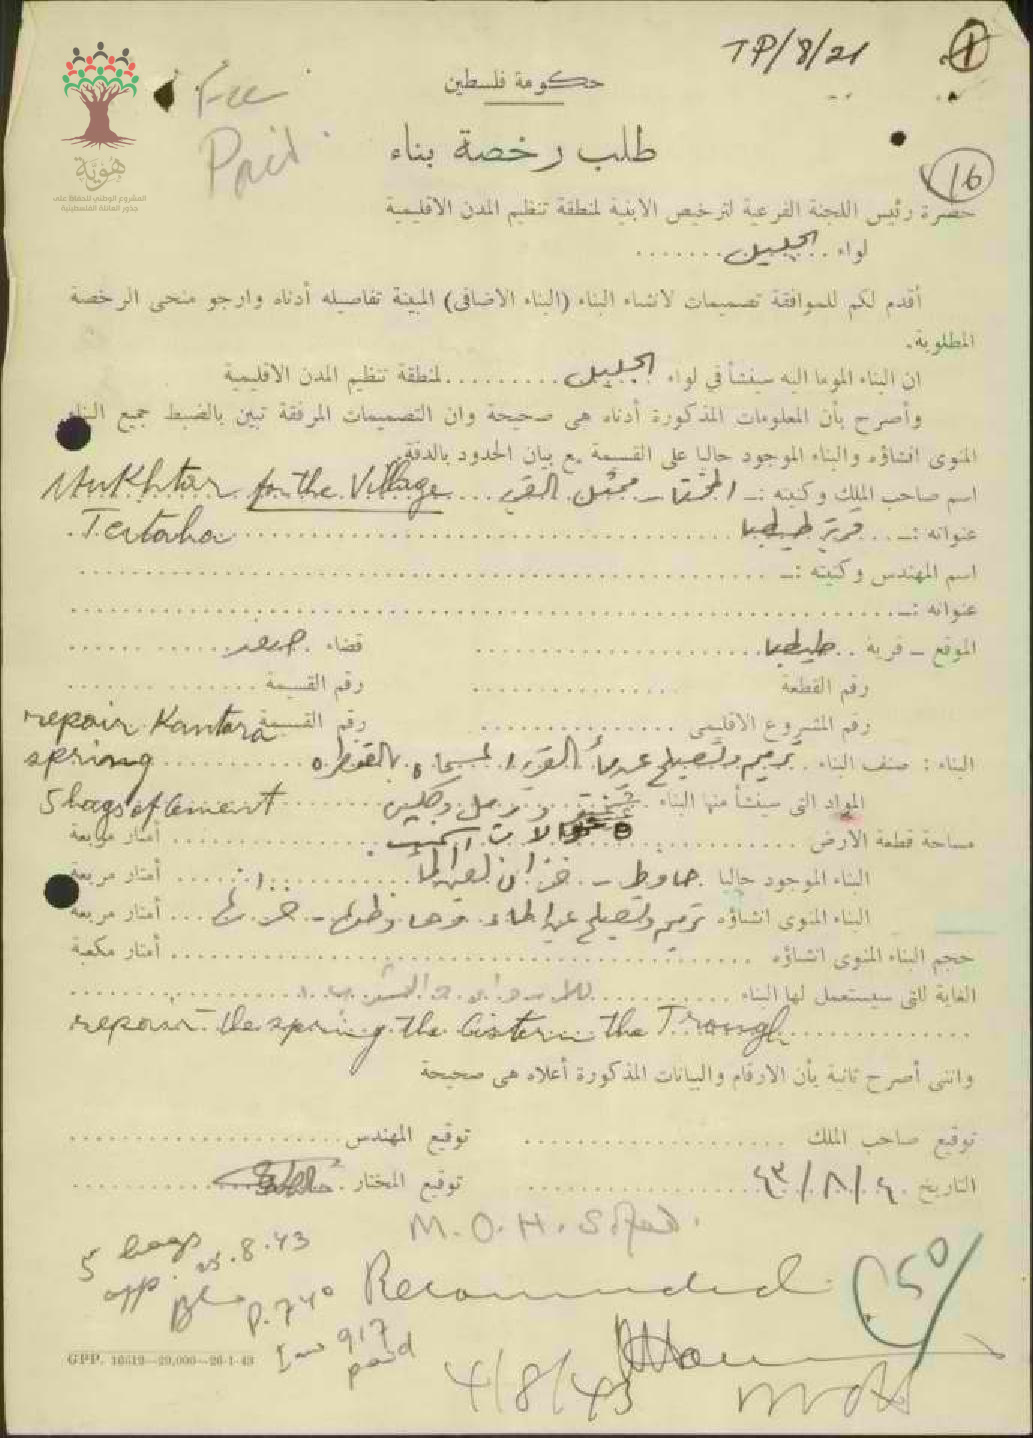 TP/8/21
1
Fee
Paid
حكومة فلسطين
طلب رخصة بناء
16
هُويَّة
المشروع الوطني للحفاظ على
جذور العائلة الفلسطينية
حضرة رئيس اللجنة الفرعية لترخيص الابنية لمنطقة تنظيم المدن الاقليمية
لواء الجليل
أقدم لكم للموافقة تصميمات لانشاء البناء (البناء الاضافى) المبينة تفاصيله أدناه وارجو منحى الرخصة
المطلوبة.
ان البناء الموما اليه سينشأ في لواء الجليل لمنطقة تنظيم المدن الاقليمية
وأصرح بأن المعلومات المذكورة أدناه هى صحيحة وان التصميمات المرفقة تبين بالضبط جميع البناء
المنوى انشاؤه والبناء الموجود حاليا على القسيمة مع بيان الحدود بالدقة.
اسم صاحب الملك وكنيته :ـ المختار ـ ممثل القرية Mukhtar for the Village
عنوانه :ـ قرية طيطبا Teitaba
اسم المهندس وكنيته :ـ
عنوانه :ـ
الموقع ـ قرية طيطبا قضاء صفد
رقم القطعة رقم القسيمة
رقم المشروع الاقليمى رقم القسيمة repair Kantara
البناء : صنف البناء ترميم وتصليح عين ماء القرية المسماه بالقنطره spring
المواد التى سينشأ منها البناء ورمل وكلس 5 bags of cement
مساحة قطعة الارض ٥ شوالات اسمنت أمتار مربعة
البناء الموجود حاليا حاوط ـ خزان لعين الماء أمتار مربعة
البناء المنوى انشاؤه ترميم وتصليح عين الماء أمتار مربعة
حجم البناء المنوى انشاؤه أمتار مكعبة
الغاية للتى سيستعمل لها البناء
repair the spring the cistern the Trough
وانى أصرح ثانية بأن الارقام والبيانات المذكورة أعلاه هى صحيحة
توقيع صاحب الملك توقيع المهندس
التاريخ ٤/٨/٤٣ توقيع المختار
M.O.H. Safad.
5 bags
app. 25.8.43
P. 740
Inv 917
paid
Recommended
4/8/43
GPP. 10512—20,000—26-1-43